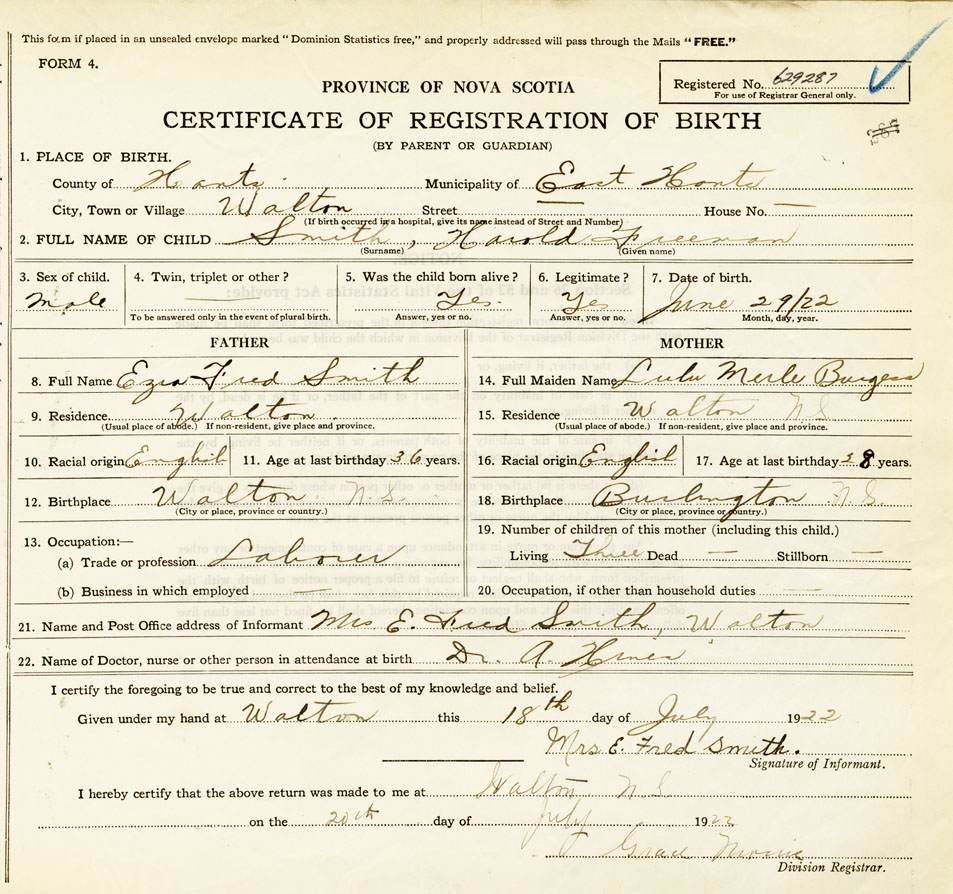 This form if placed in an unsealed envelope marked "Dominion Statistics free," and properly addressed will pass through the Mails "FREE."
FORM 4.
Registered No. 629287
For use of Registrar General only.
PROVINCE OF NOVA SCOTIA
CERTIFICATE OF REGISTRATION OF BIRTH
(BY PARENT OR GUARDIAN)
1. PLACE OF BIRTH.
County of Hants Municipality of East Hants
City, Town or Village Walton Street — House No. —
(If birth occurred in a hospital, give its name instead of Street and Number)
2. FULL NAME OF CHILD Smith, Harold Freeman
(Surname) (Given name)
3. Sex of child. 4. Twin, triplet or other? 5. Was the child born alive? 6. Legitimate? 7. Date of birth.
Male — Yes. Yes June 29/22
To be answered only in the event of plural birth. Answer, yes or no. Answer, yes or no. Month, day, year.
FATHER MOTHER
8. Full Name Ezra Fred Smith 14. Full Maiden Name Lulu Merle Burgess
9. Residence. Walton. 15. Residence Walton N.S
(Usual place of abode.) If non-resident, give place and province. (Usual place of abode.) If non-resident, give place and province.
10. Racial origin English 11. Age at last birthday 36 years. 16. Racial origin English 17. Age at last birthday 28 years.
12. Birthplace Walton N.S. 18. Birthplace Burlington N.S.
(City or place, province or country.) (City or place, province or country.)
13. Occupation:— 19. Number of children of this mother (including this child.)
(a) Trade or profession Laborer Living Three Dead — Stillborn —
(b) Business in which employed — 20. Occupation, if other than household duties —
21. Name and Post Office address of Informant Mrs E. Fred Smith, Walton
22. Name of Doctor, nurse or other person in attendance at birth Dr. A.
I certify the foregoing to be true and correct to the best of my knowledge and belief.
Given under my hand at Walton this 18th day of July 1922
Mrs. E. Fred Smith.
Signature of Informant.
I hereby certify that the above return was made to me at Walton N S
on the 20th day of July 1922
Grace
Division Registrar.